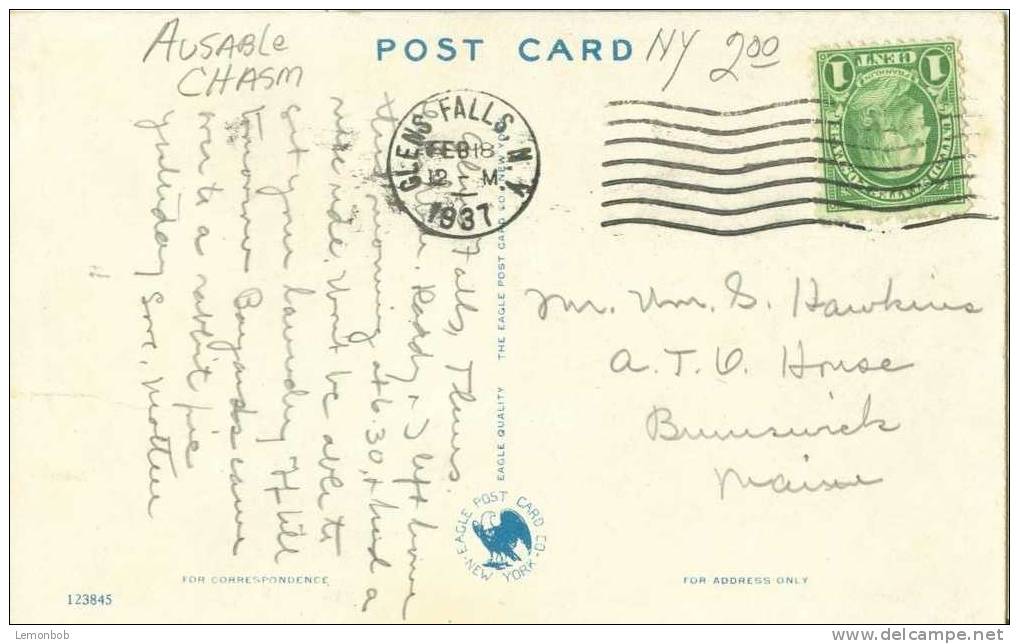 AUSABLE
CHASM
POST CARD
NY 2.00
GLENS FALLS, N.Y.
FEB 18
12 - M
1937
1 CENT 1
FRANKLIN
UNITED STATES POSTAGE
Falls, Thurs.
Daddy + I left home
this morning at 6:30, + had a
nice ride. Won't be able to
get your laundry till
tomorrow
over to a rabbit pie
yesterday Mother
Mr. Wm. S. Hawkins
A.T.O. House
Brunswick
Maine
EAGLE QUALITY THE EAGLE POST CARD CO. NEW YORK
EAGLE POST CARD CO.
NEW YORK
FOR CORRESPONDENCE
FOR ADDRESS ONLY
123845
Lemonbob
www.delcampe.net